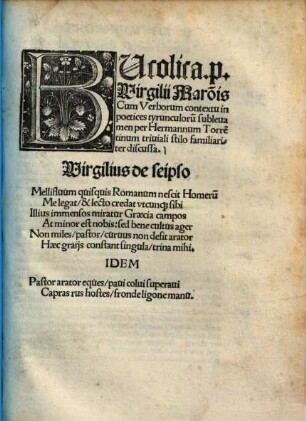 BUcolica.p.
Virgilii Marõis
Cum Verborum contextu in
poetices tyrunculorũ subleua
men per Hermannum Torrẽ
tinum triuiali stilo familiari⸗
ter discussa.
Virgilius de seipso
Mellifluum quisquis Romanum nescit Homerũ
Me legat/& lecto credat vtrunq; sibi
Illius immensos miratur Græcia campos
At minor est nobis: sed bene cultus ager
Non miles/pastor/curuus non desit arator
Hæc graijs constant singula/trina mihi.
IDEM
Pastor arator eques/paui colui superaui
Capras rus hostes/fronde ligone manu.